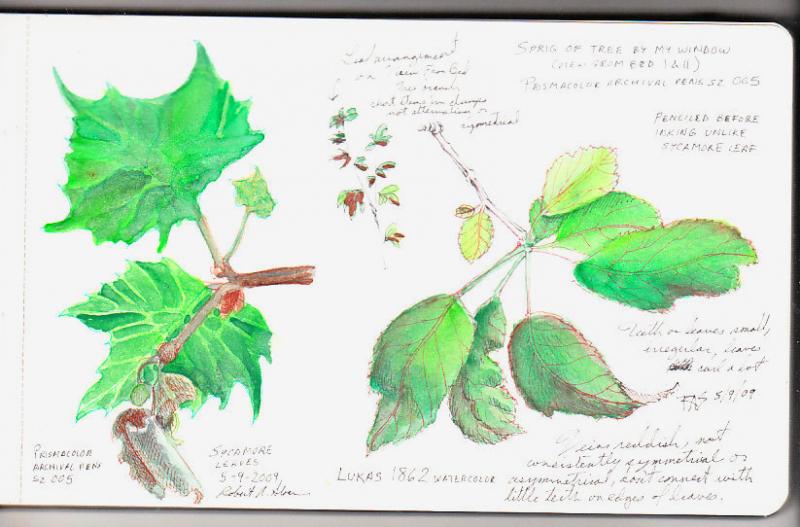 Leaf arrangement
on
Tree branch
short stems in clumps
not alternating or
symmetrical
SPRIG OF TREE BY MY WINDOW
(VIEW FROM BED 1 & 11)
PRISMACOLOR ARCHIVAL PENS SZ 005
PENCILED BEFORE
INKING UNLIKE
SYCAMORE LEAF
Teeth on leaves small,
irregular, leaves
curl a lot
5/9/09
Veins reddish, not
consistently symmetrical or
asymmetrical, don't connect with
little teeth on edges of leaves.
PRISMACOLOR
ARCHIVAL PENS
SZ 005
SYCAMORE
LEAVES
5-9-2009
Robert A.
LUKAS 1862 WATERCOLOR